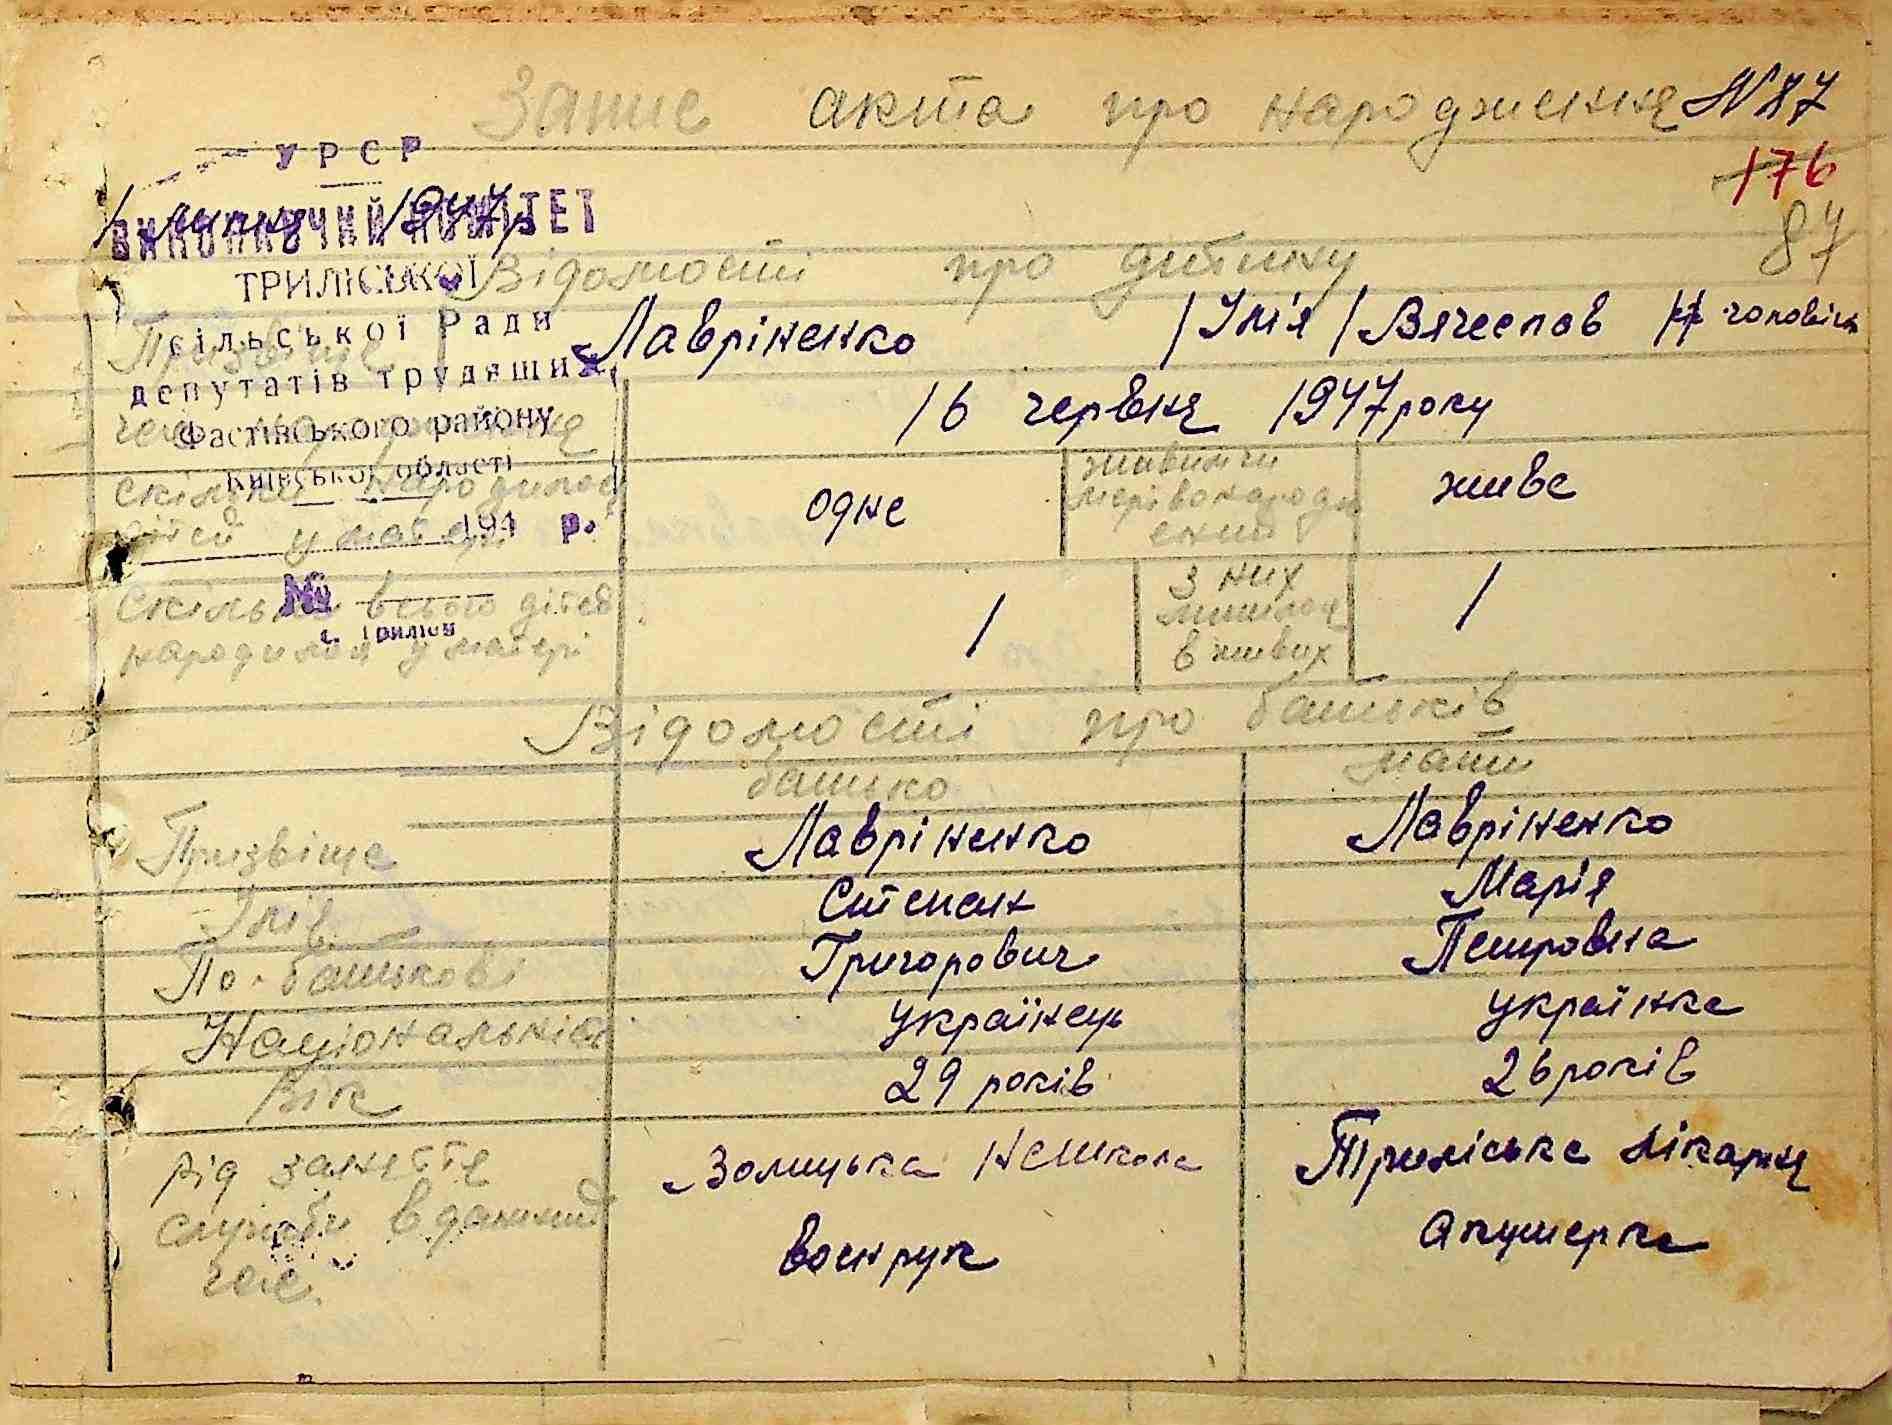 Запис акта про народження №87
176
87
УРСР
1 липня 1947 р
ВИКОНАВЧИЙ КОМІТЕТ
ТРИЛІСЬКОЇ
сільської Ради
депутатів трудящих
Фастівського району
Київської області
194 р.
№
с. Триліси
Відомості про дитину
Прізвище Лавріненко /Імія/ Вячеслав
час народження 16 червня 1947 року
Скільки народилось дітей у матері одне живим чи живе
Скільки всього дітей народилося у матері 1 з них лишилось в живих 1
Відомості про батьків
батько мати
Призвіще Лавріненко Лавріненко
Імів Степан Марія
По-батькові Григорович Петровна
Національність українець українка
Вік 29 років 26 років
Рід заняття Триліська лікарня
служби в данний
час. военрук акушерка